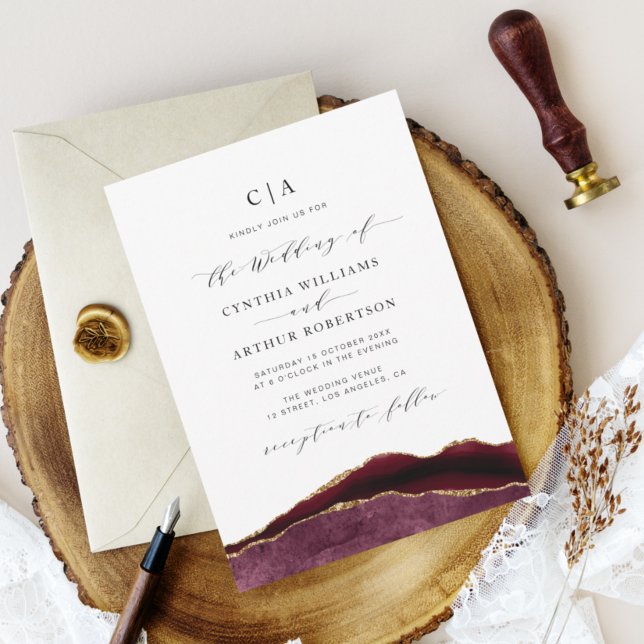 C|A
KINDLY JOIN US FOR
the Wedding of
CYNTHIA WILLIAMS
and
ARTHUR ROBERTSON
SATURDAY 15 OCTOBER 20XX
AT 6 O'CLOCK IN THE EVENING
THE WEDDING VENUE
12 STREET, LOS ANGELES, CA
reception to follow